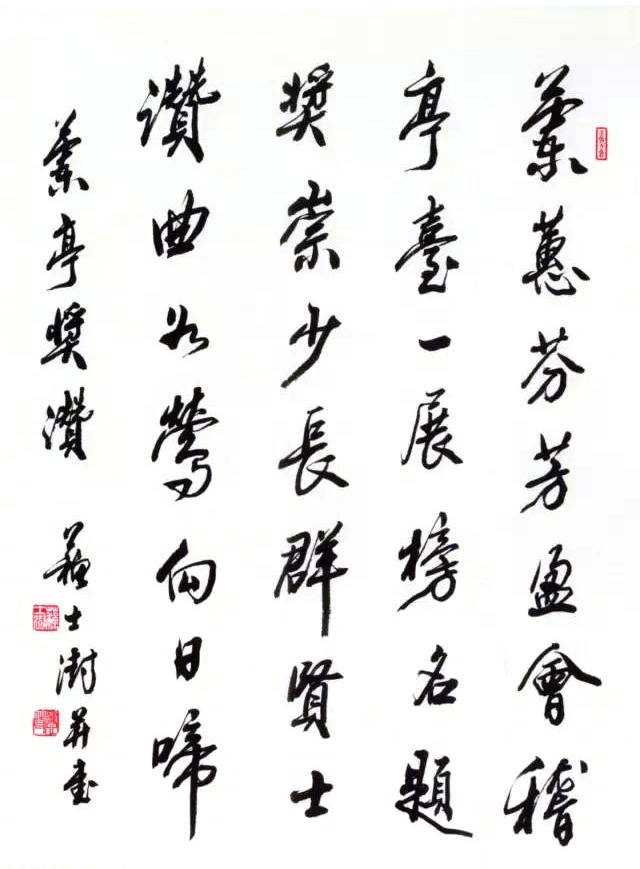 蘭蕙芬芳盈會稽
亭臺一展榜名題
獎崇少長群賢士
讚曲如鶯向日啼
蘭亭獎讚 蘇士澍并書